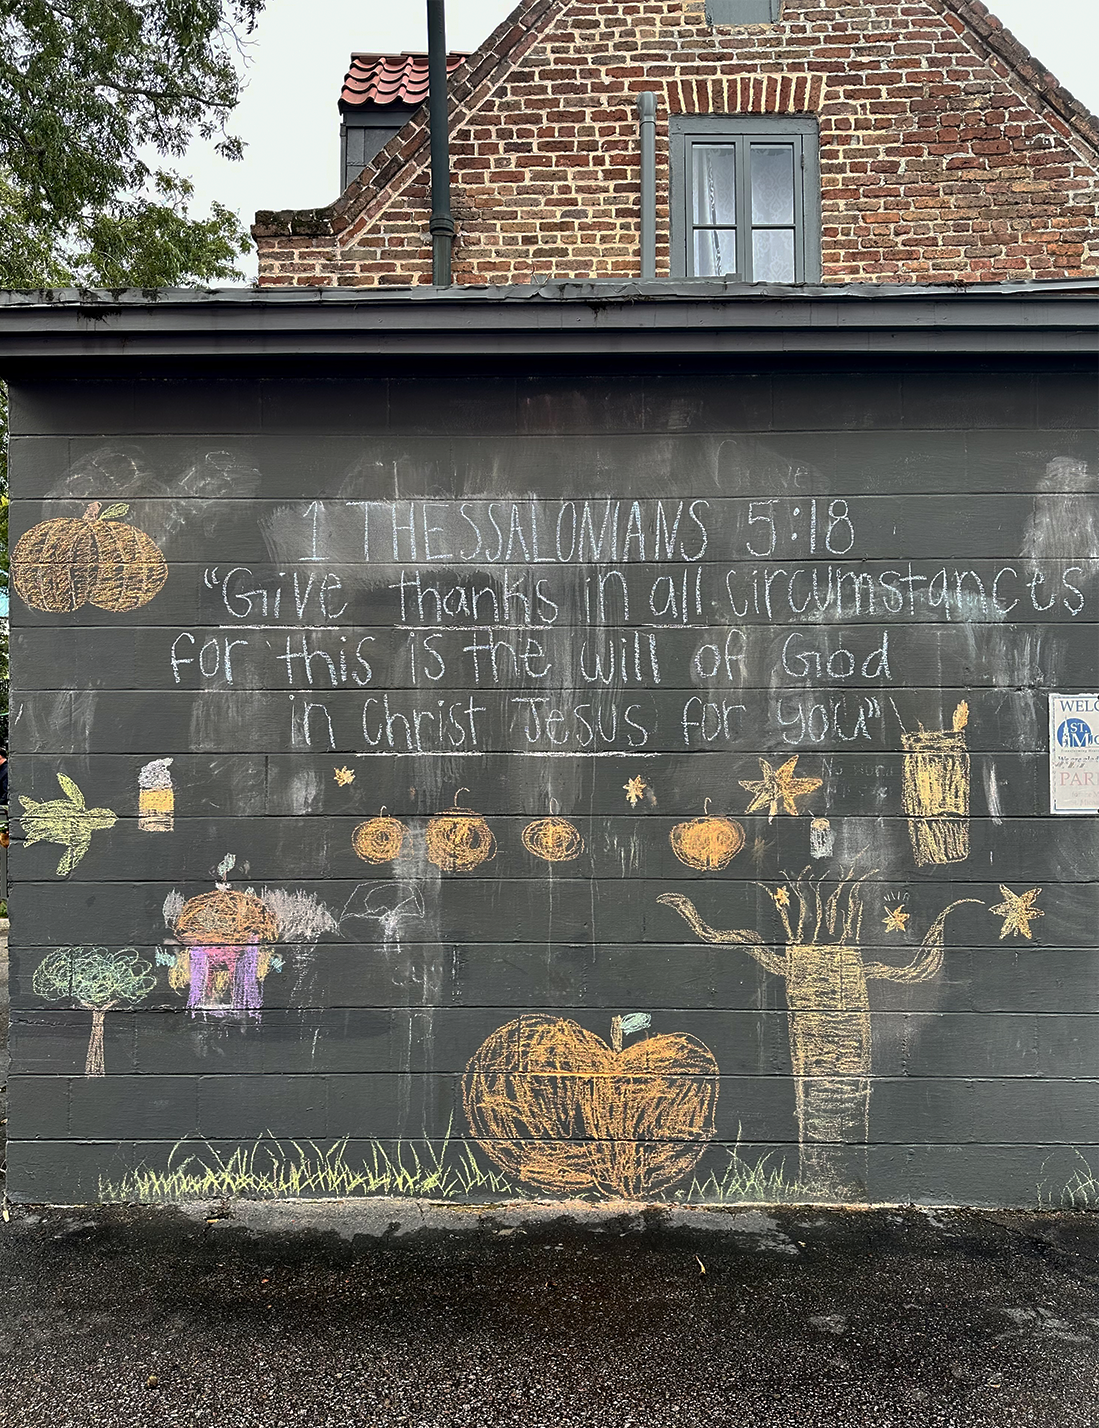 1 THESSALONIANS 5:18
"Give thanks in all circumstances
for this is the will of God
in Christ Jesus for you"
WELC
ST.
MIC
PAR